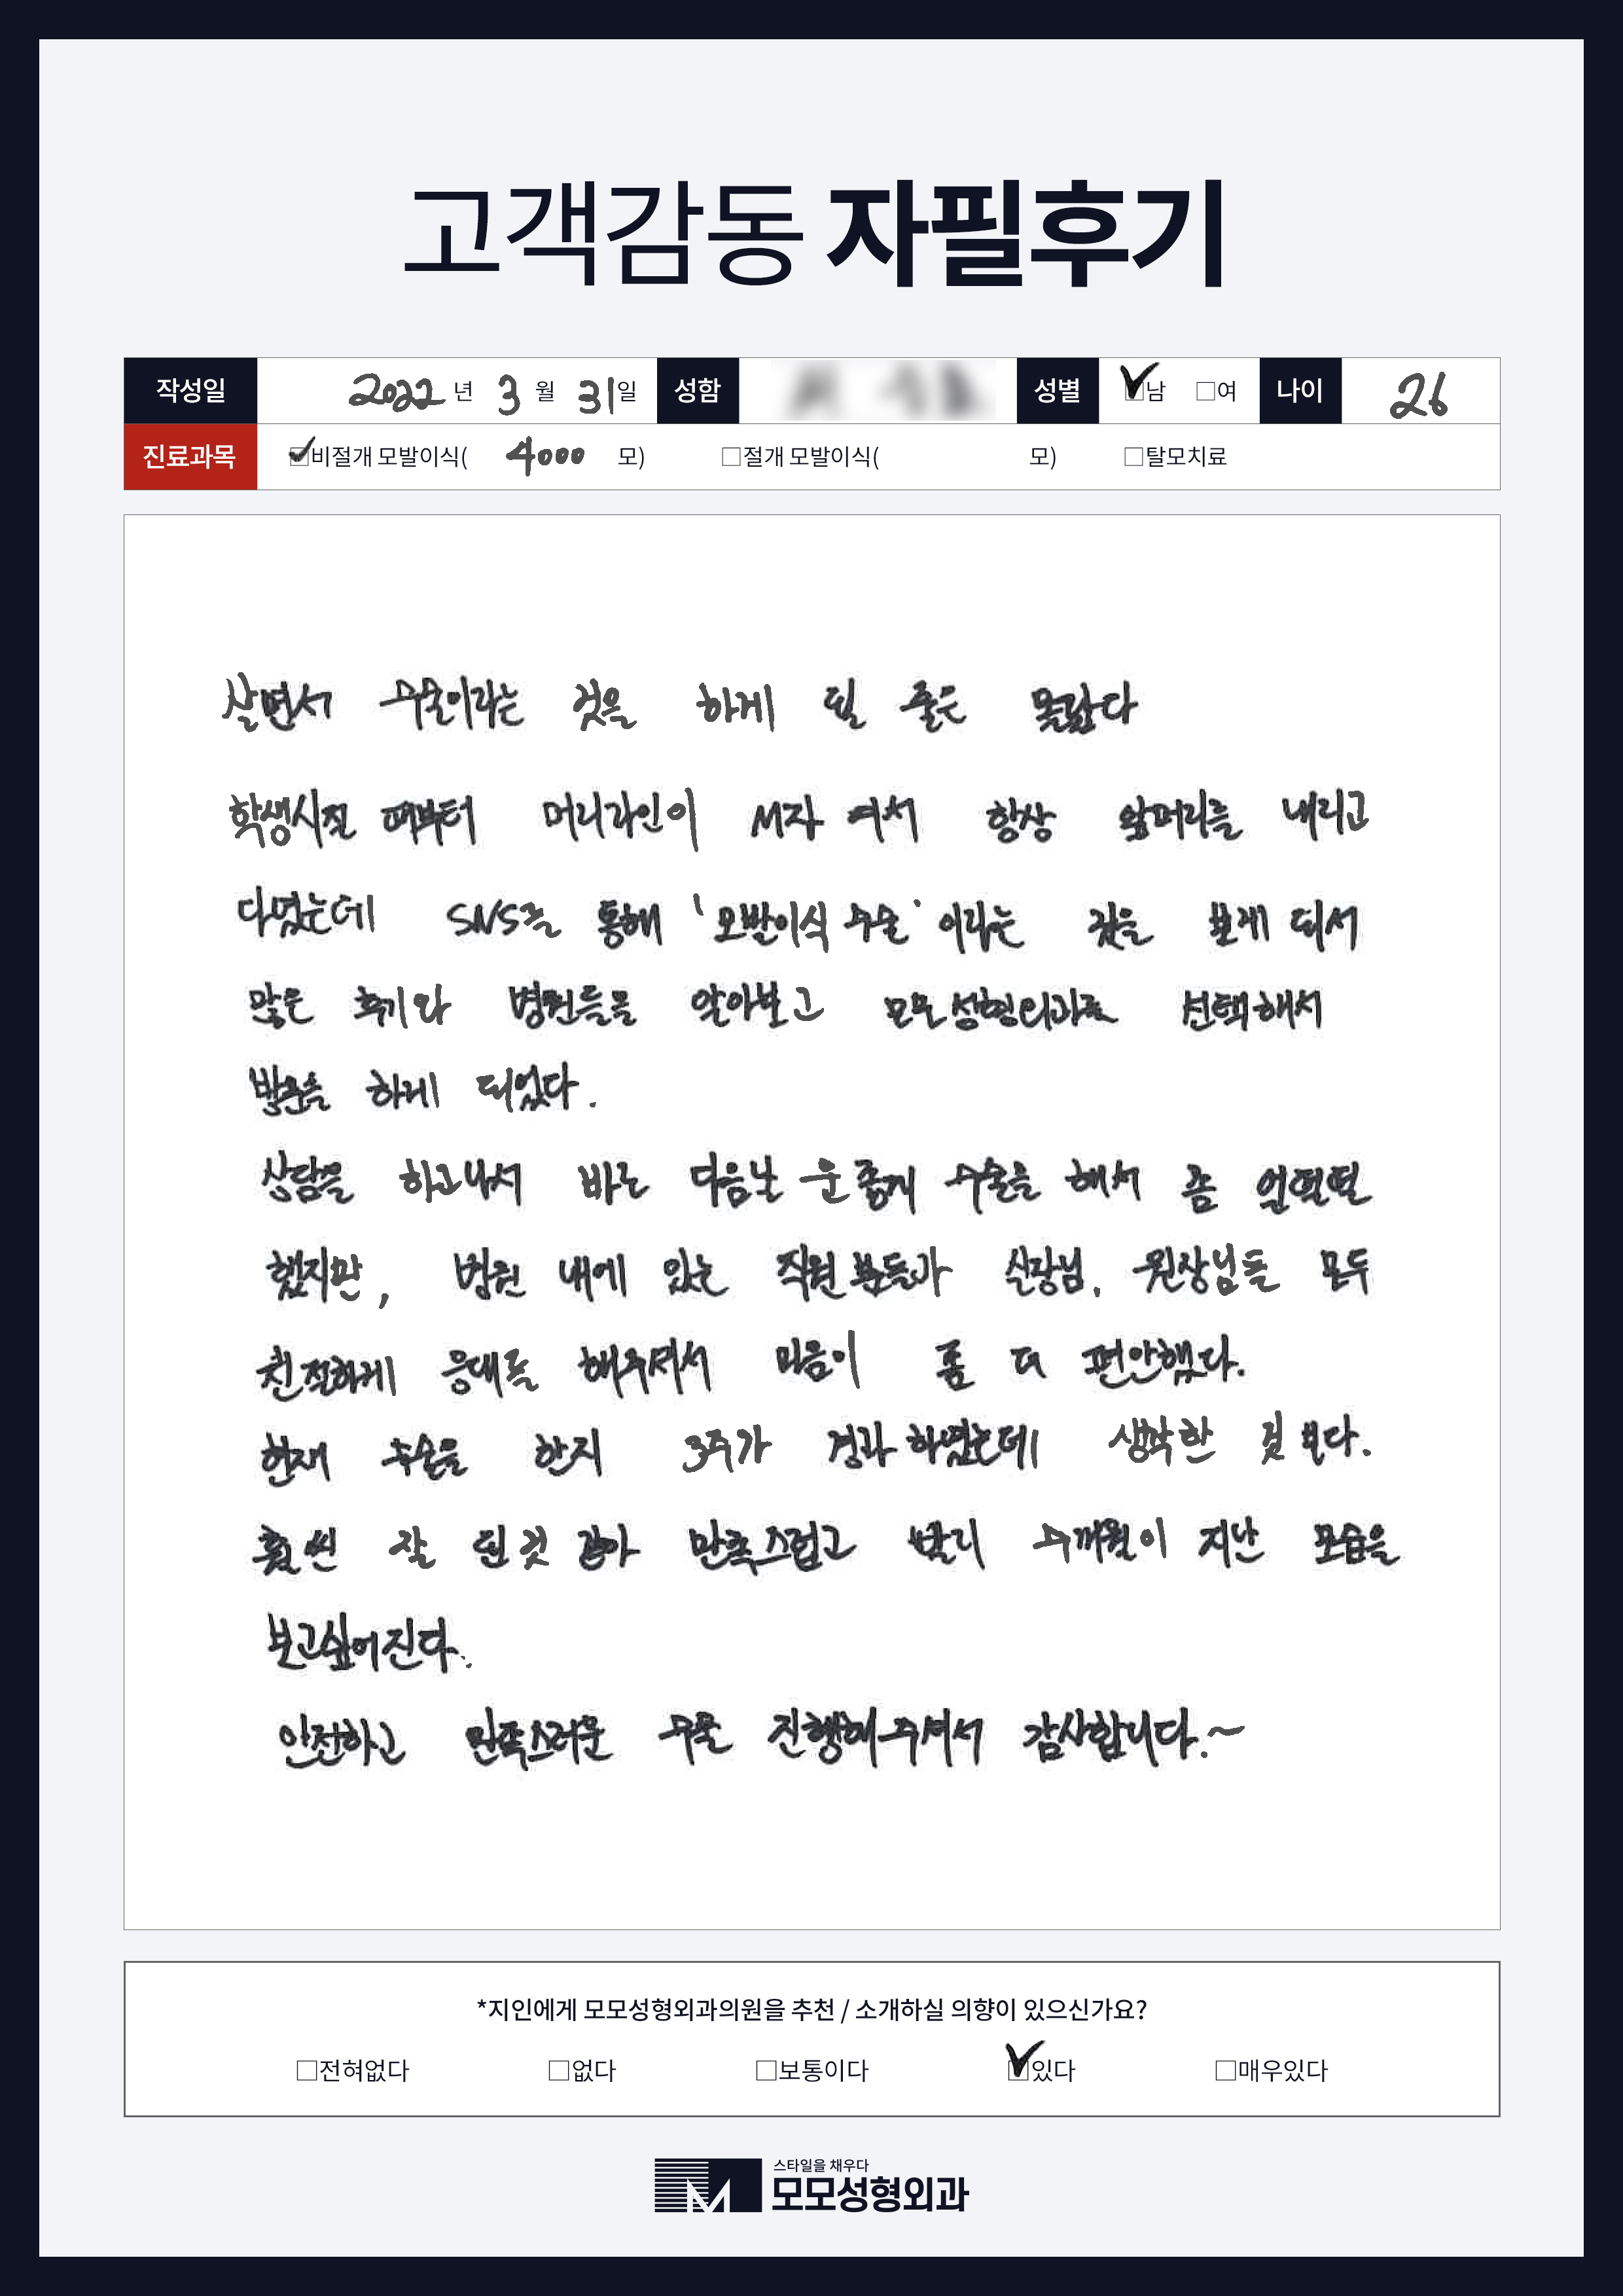 고객감동 자필후기
작성일 2022 년 3 월 31 일 성함 성별 ☑남 □여 나이 26
진료과목 ☑비절개 모발이식( 4000 모) □절개 모발이식( 모) □탈모치료
살면서 수술이라는 것을 하게 될 줄은 몰랐다
학생시절 때부터 머리라인이 M자 여서 항상 앞머리를 내리고
다녔는데 SNS를 통해 '모발이식 수술' 이라는 것을 보게 되서
많은 후기와 병원들을 알아보고 모모성형외과로 선택해서
방문을 하게 되었다.
상담을 하고나서 바로 다음날 운좋게 수술을 해서 좀 얼떨떨
했지만, 병원 내에 있는 직원분들과 실장님, 원장님들 모두
친절하게 응대를 해주셔서 마음이 좀 더 편안했다.
현재 수술을 한지 3주가 경과하였는데 생각한 것 보다.
훨씬 잘 된것 같아 만족스럽고 빨리 수개월이 지난 모습을
보고싶어진다.
안전하고 만족스러운 수술 진행해주셔서 감사합니다.~
*지인에게 모모성형외과의원을 추천 / 소개하실 의향이 있으신가요?
□전혀없다 □없다 □보통이다 ☑있다 □매우있다
스타일을 채우다
모모성형외과